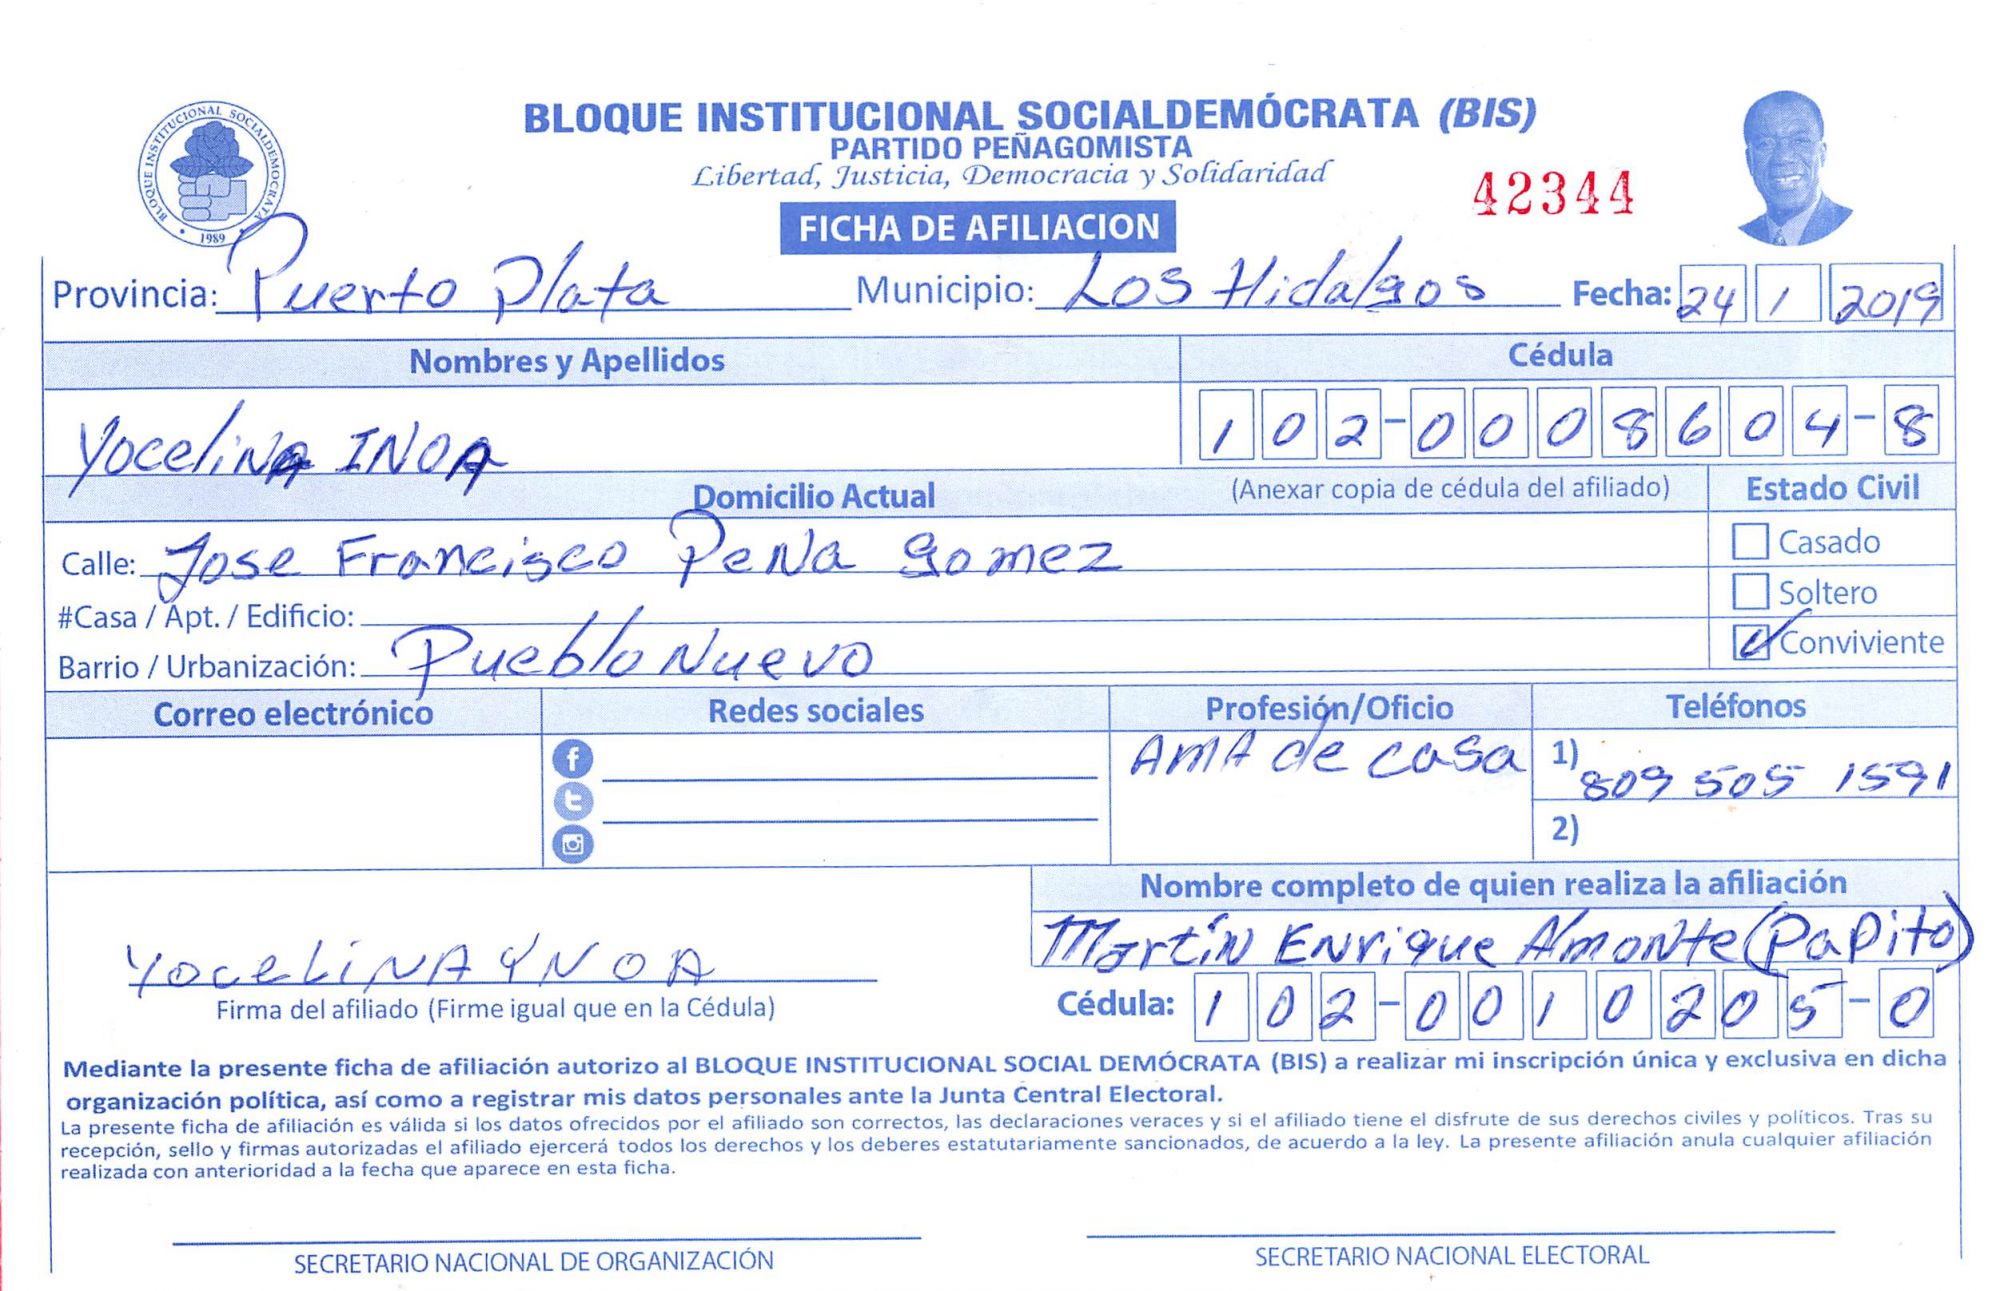 BLOQUE INSTITUCIONAL SOCIALDEMÓCRATA (BIS)
PARTIDO PEÑAGOMISTA
Libertad, Justicia, Democracia y Solidaridad
42344
BLOQUE INSTITUCIONAL SOCIALDEMOCRATA
1989
FICHA DE AFILIACION
Provincia: Puerto Plata Municipio: Los Hidalgos Fecha: 24 1 2019
Nombres y Apellidos Cédula
Yocelina INOA 102-0008604-8
Domicilio Actual (Anexar copia de cédula del afiliado) Estado Civil
Calle: Jose Francisco Pena Gomez Casado
#Casa / Apt. / Edificio: Soltero
Barrio / Urbanización: Pueblo Nuevo Conviviente
Correo electrónico Redes sociales Profesión/Oficio Teléfonos
AMA de casa 1) 809 505 1591
2)
Nombre completo de quien realiza la afiliación
Martín Enrique Almonte (Papito)
YoceLiNA YNOA
Firma del afiliado (Firme igual que en la Cédula) Cédula: 102-0010205-0
Mediante la presente ficha de afiliación autorizo al BLOQUE INSTITUCIONAL SOCIAL DEMÓCRATA (BIS) a realizar mi inscripción única y exclusiva en dicha
organización política, así como a registrar mis datos personales ante la Junta Central Electoral.
La presente ficha de afiliación es válida si los datos ofrecidos por el afiliado son correctos, las declaraciones veraces y si el afiliado tiene el disfrute de sus derechos civiles y políticos. Tras su
recepción, sello y firmas autorizadas el afiliado ejercerá todos los derechos y los deberes estatutariamente sancionados, de acuerdo a la ley. La presente afiliación anula cualquier afiliación
realizada con anterioridad a la fecha que aparece en esta ficha.
SECRETARIO NACIONAL DE ORGANIZACIÓN SECRETARIO NACIONAL ELECTORAL